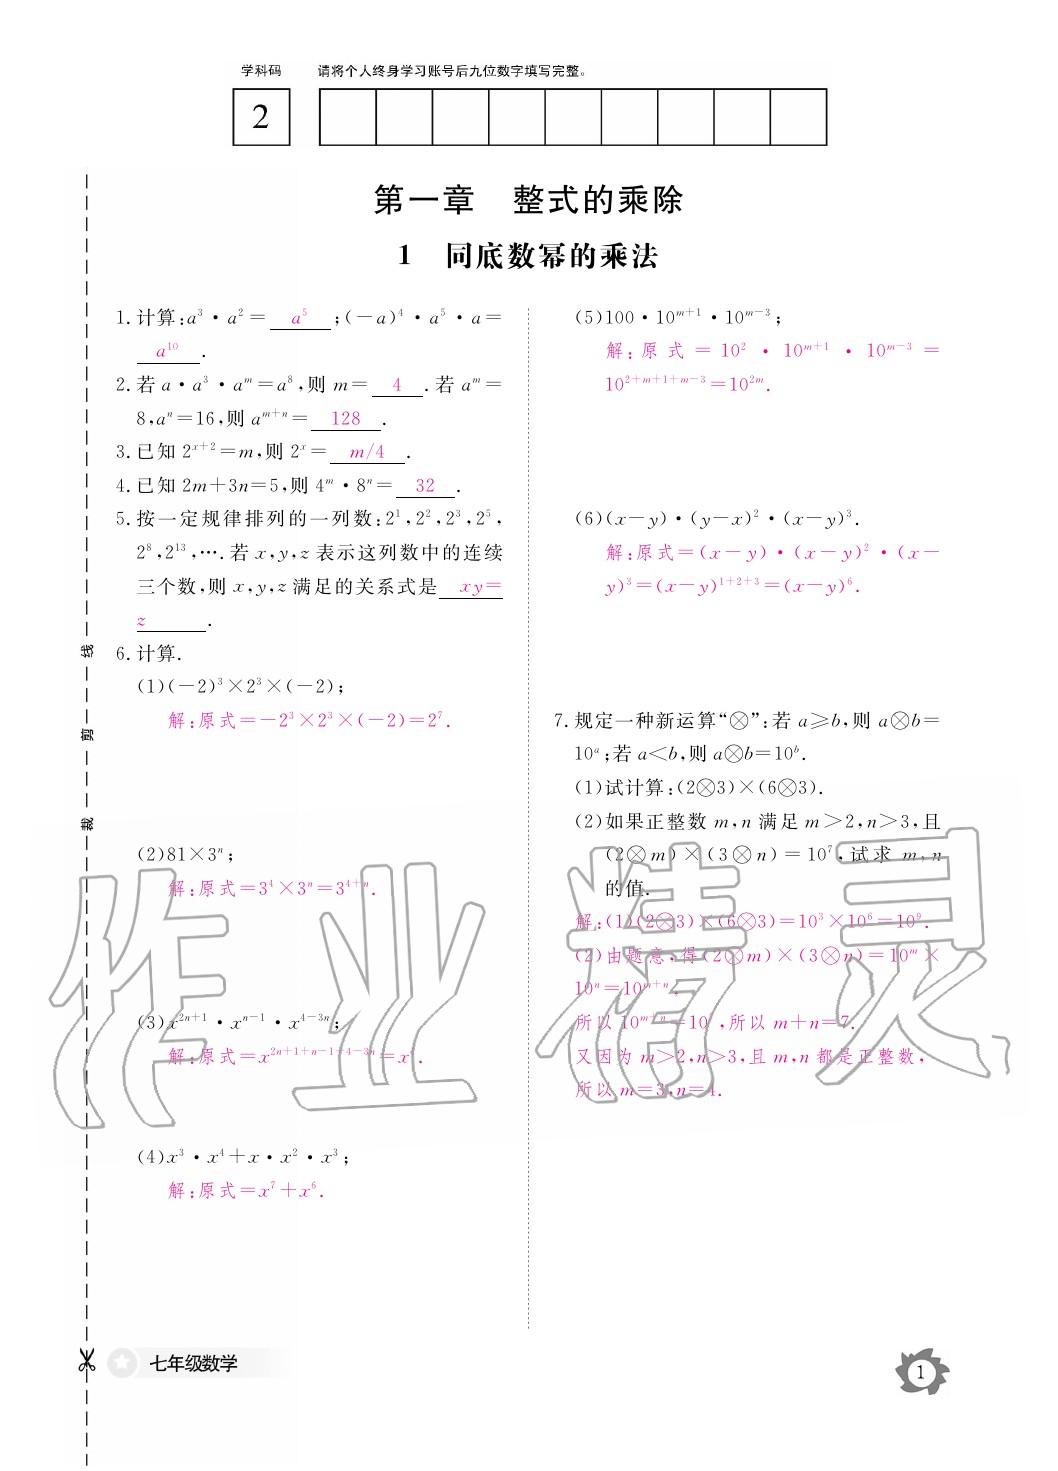 学科码 请将个人终身学习账号后九位数字填写完整。
2
第一章 整式的乘除
1 同底数幂的乘法
1. 计算:a³·a²= a⁵ ;(-a)⁴·a⁵·a=
a¹⁰ .
2. 若 a·a³·aᵐ=a⁸,则 m= 4 .若 aᵐ=
8,aⁿ=16,则 aᵐ⁺ⁿ= 128 .
3. 已知 2ˣ⁺²=m,则 2ˣ= m/4 .
4. 已知 2m+3n=5,则 4ᵐ·8ⁿ= 32 .
5. 按一定规律排列的一列数:2¹,2²,2³,2⁵,
2⁸,2¹³,….若 x,y,z 表示这列数中的连续
三个数,则 x,y,z 满足的关系式是 xy=
z .
6. 计算.
(1)(-2)³×2³×(-2);
解:原式=-2³×2³×(-2)=2⁷.
(2)81×3ⁿ;
解:原式=3⁴×3ⁿ=3⁴⁺ⁿ.
(3)x²ⁿ⁺¹·xⁿ⁻¹·x⁴⁻³ⁿ;
解:原式=x²ⁿ⁺¹⁺ⁿ⁻¹⁺⁴⁻³ⁿ=x⁴.
(4)x³·x⁴+x·x²·x³;
解:原式=x⁷+x⁶.
(5)100·10ᵐ⁺¹·10ᵐ⁻³;
解:原式=10²·10ᵐ⁺¹·10ᵐ⁻³=
10²⁺ᵐ⁺¹⁺ᵐ⁻³=10²ᵐ.
(6)(x-y)·(y-x)²·(x-y)³.
解:原式=(x-y)·(x-y)²·(x-
y)³=(x-y)¹⁺²⁺³=(x-y)⁶.
7. 规定一种新运算“⊗”:若 a≥b,则 a⊗b=
10ᵃ;若 a<b,则 a⊗b=10ᵇ.
(1)试计算:(2⊗3)×(6⊗3).
(2)如果正整数 m,n 满足 m>2,n>3,且
(2⊗m)×(3⊗n)=10⁷,试求 m,n
的值.
解:(1)(2⊗3)×(6⊗3)=10³×10⁶=10⁹.
(2)由题意,得(2⊗m)×(3⊗n)=10ᵐ×
10ⁿ=10ᵐ⁺ⁿ,
所以 10ᵐ⁺ⁿ=10⁷,所以 m+n=7.
又因为 m>2,n>3,且 m,n 都是正整数,
所以 m=3,n=4.
线
剪
裁
作业精灵
七年级数学
1